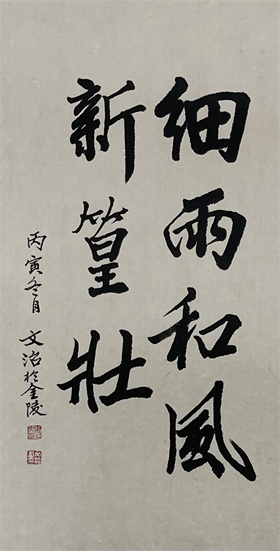 細雨和風
新篁壯
丙寅冬月 文治於金陵